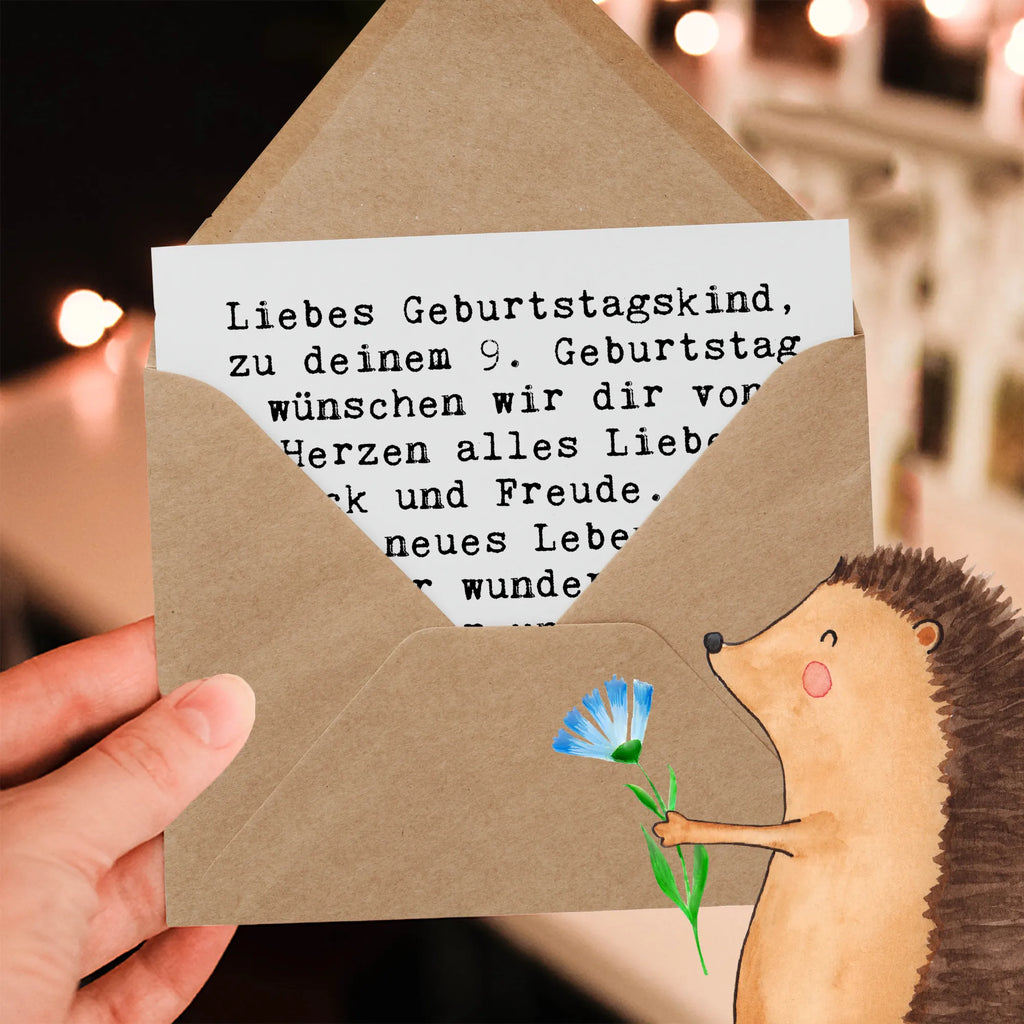 Liebes Geburtstagskind,
zu deinem 9. Geburtstag
wünschen wir dir von
Herzen alles Liebe
und Freude.
neues